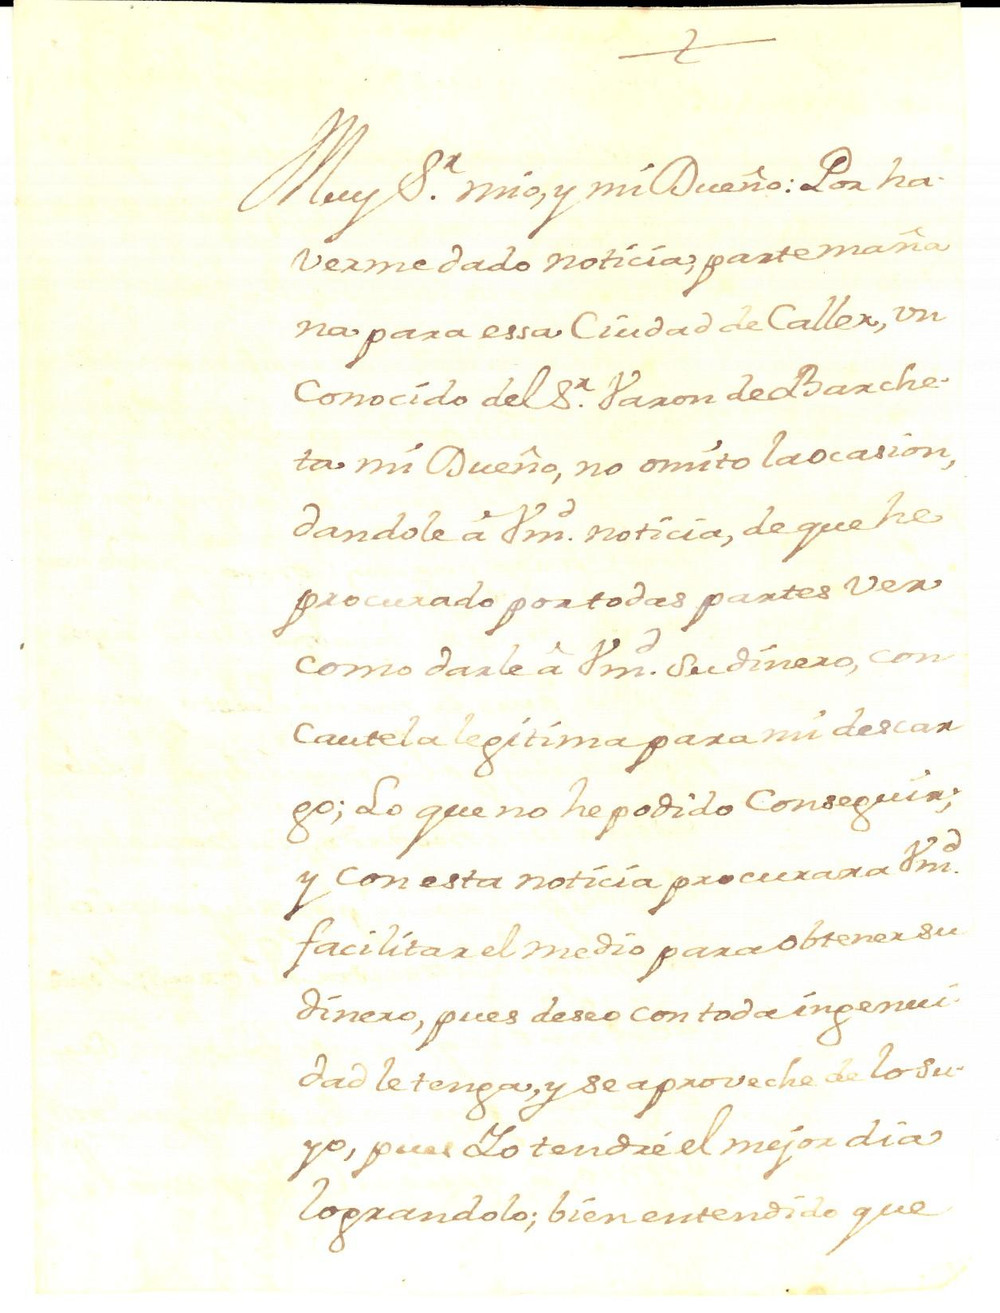 Muy S.r mio, y mi Dueño: Por ha-
verme dado noticia, parte maña
na para essa Ciudad de Caller, un
Conocido del S.r Varon de Barche-
ta mi Dueño, no omito la ocasion,
dandole à Vm.d noticia, de que he
procurado por todas partes ver
como darle à Vm.d su dinero, con
cautela legitima para mi descar
go; Lo que no he podido Conseguir;
y con esta noticia procurara Vm.d
facilitar el medio para obtener su
dinero, pues deseo con toda ingenui-
dad le tenga, y se aproveche de lo su-
yo, pues Yo tendré el mejor dia
lograndolo; bien entendido que